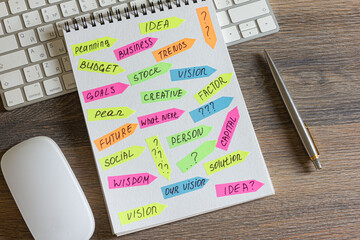 IDEA
?
?
planning
BUSINESS
TRENDS
BUDGET
STOCK
VISION
GOALS
CREATIVE
FACTOR
pean
What Next
???
FUTURE
PERSON
CAPITAL
SOCIAL
?
?
?
?
?
solution
WISDOM
OUR VISION
IDEA?
VISION